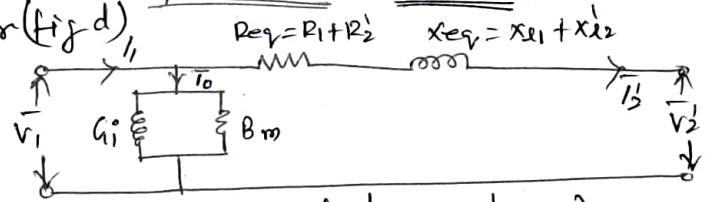 (fig d)
Req = R1 + R2' Xeq = Xl1 + Xl2'
I1
I0 I2'
V1 Gi Bm V2'